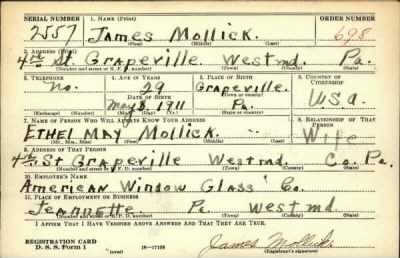 SERIAL NUMBER 1. NAME (Print) ORDER NUMBER
2557 James Mollick. 698
(First) (Middle) (Last)
2. ADDRESS (Print)
4th St. Grapeville. Westmd. Pa.
(Number and street or R. F. D. number) (Town) (County) (State)
3. TELEPHONE 4. AGE IN YEARS 5. PLACE OF BIRTH 6. COUNTRY OF CITIZENSHIP
no. 29 Grapeville.
DATE OF BIRTH (Town or county)
May 1911 Pa. U.S.A.
(Exchange) (Number) (Mo.) (Day) (Yr.) (State or country)
7. NAME OF PERSON WHO WILL ALWAYS KNOW YOUR ADDRESS 8. RELATIONSHIP OF THAT PERSON
Ethel May Mollick. Wife
(Mr., Mrs., Miss) (First) (Middle) (Last)
9. ADDRESS OF THAT PERSON
4th St Grapeville Westmd. Co. Pa.
(Number and street or R. F. D. number) (Town) (County) (State)
10. EMPLOYER'S NAME
American Window Glass Co.
11. PLACE OF EMPLOYMENT OR BUSINESS
Jeannette Pa. Westmd.
(Number and street or R. F. D. number) (Town) (County) (State)
I AFFIRM THAT I HAVE VERIFIED ABOVE ANSWERS AND THAT THEY ARE TRUE.
REGISTRATION CARD
D. S. S. Form 1 (over) 16—17105 James Mollick
(Registrant's signature)